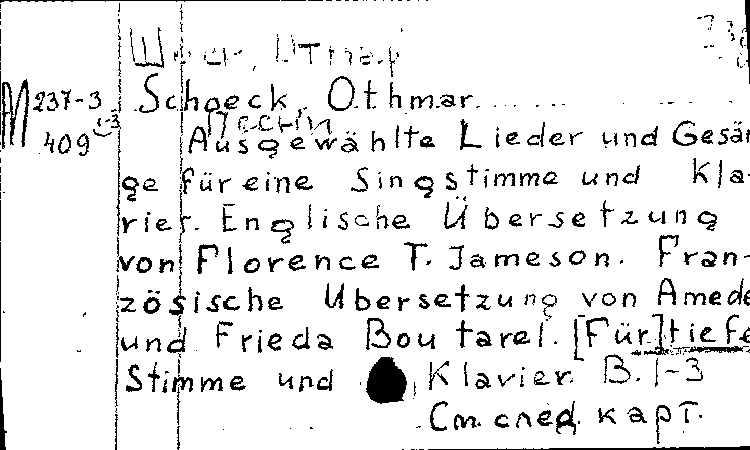 Шёк, Отмар
M 237-3 Schoeck, Othmar
409 Песни
Ausgewählte Lieder und Gesän
ge für eine Singstimme und Kla-
vier. Englische Übersetzung
von Florence T. Jameson. Fran-
zösische Übersetzung von Amede
und Frieda Boutarel. [Für] tiefe
Stimme und Klavier. B. 1-3
См. след. карт.